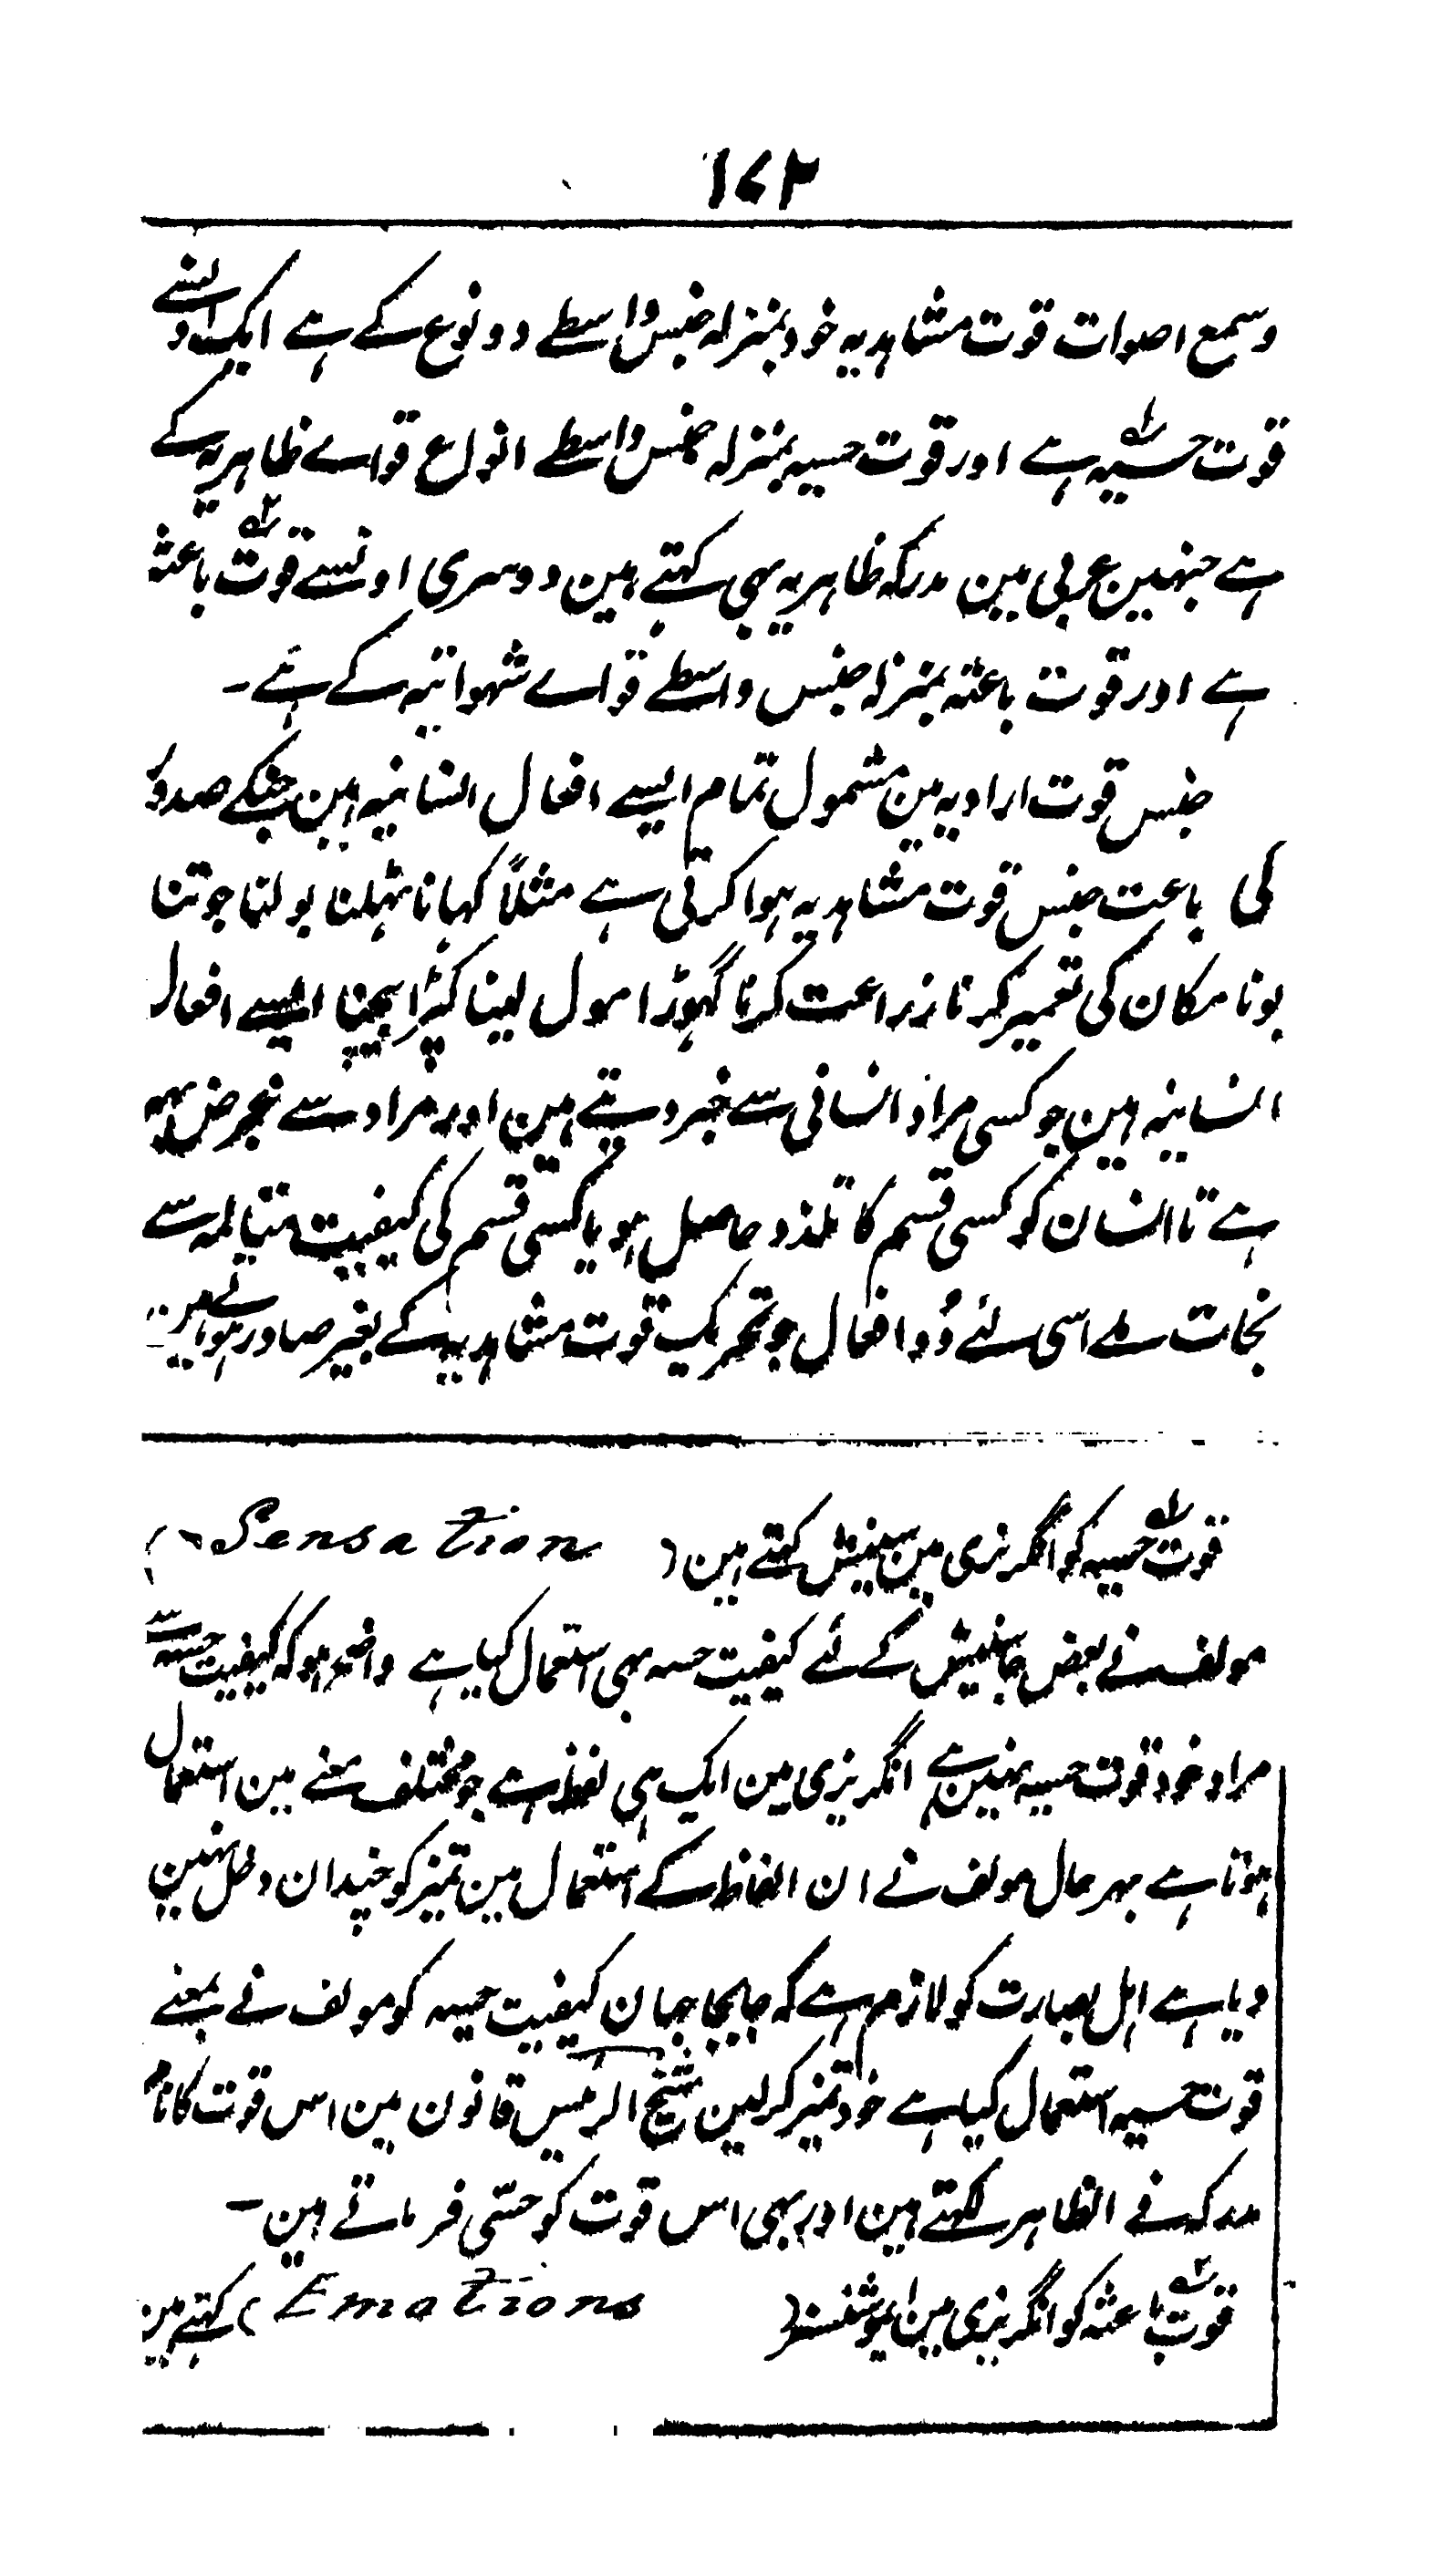 ۱۷۲
وسمع اصوات قوت مشاہدیہ خود بمنزلہ جنس واسطے دو نوع کے ہے ایک اونسے
قوت حسیہ ہے اور قوت حسیہ بمنزلہ جنس واسطے انواع قواے ظاہریہ کے
ہے جنہین عربی مین مدرکہ ظاہریہ بھی کہتے ہین دوسری اونسے قوت باعثہ
ہے اور قوت باعثہ بمنزلہ جنس واسطے قواے شہوانیہ کے ہے۔
جنس قوت ارادیہ مین مشمول تمام ایسے افعال انسانیہ ہین جنکے صدور
کی باعث جنس قوت مشاہدیہ ہوا کرتی ہے مثلاً کہانا ٹہلنا بولنا جوتنا
بونا مکان کی تعمیر کرنا زراعت کرنا گہوڑا مول لینا کپڑا بیچنا ایسے افعال
انسانیہ ہین جو کسی مراد انسانی سے خبر دیتے ہین اور مراد سے غرض یہہ
ہے تا انسان کو کسی قسم کا تلذذ حاصل ہو یا کسی قسم کی کیفیت متالمہ سے
نجات ملے اسی لئے وُہ افعال جو تحریک قوت مشاہدیہ کے بغیر صادر ہوتے ہین
قوت حسیہ کو انگریزی مین سینسیشن کہتے ہین (Sensation)
مولف نے بعض جا سینسیشن کے لئے کیفیت حسہ بھی استعمال کیا ہے واضح ہو کہ کیفیت حسہ سے
مراد خود قوت حسیہ نہین ہے انگریزی مین ایک ہی لفظ ہے جو مختلف معنے مین استعمال
ہوتا ہے بہر حال مولف نے ان الفاظ کے استعمال مین تمیز کو چندان دخل نہین
دیا ہے اہل بصارت کو لازم ہے کہ جابجا جہان کیفیت حسیہ کو مولف نے بمعنے
قوت حسیہ استعمال کیا ہے خود تمیز کرلین شیخ الرئیس قانون مین اس قوت کا نام
مدرکہ فے الظاہر لکہتے ہین اور بھی اس قوت کو حسّی فرماتے ہین۔
قوت باعثہ کو انگریزی مین ایموشنس (Emotions) کہتے ہین